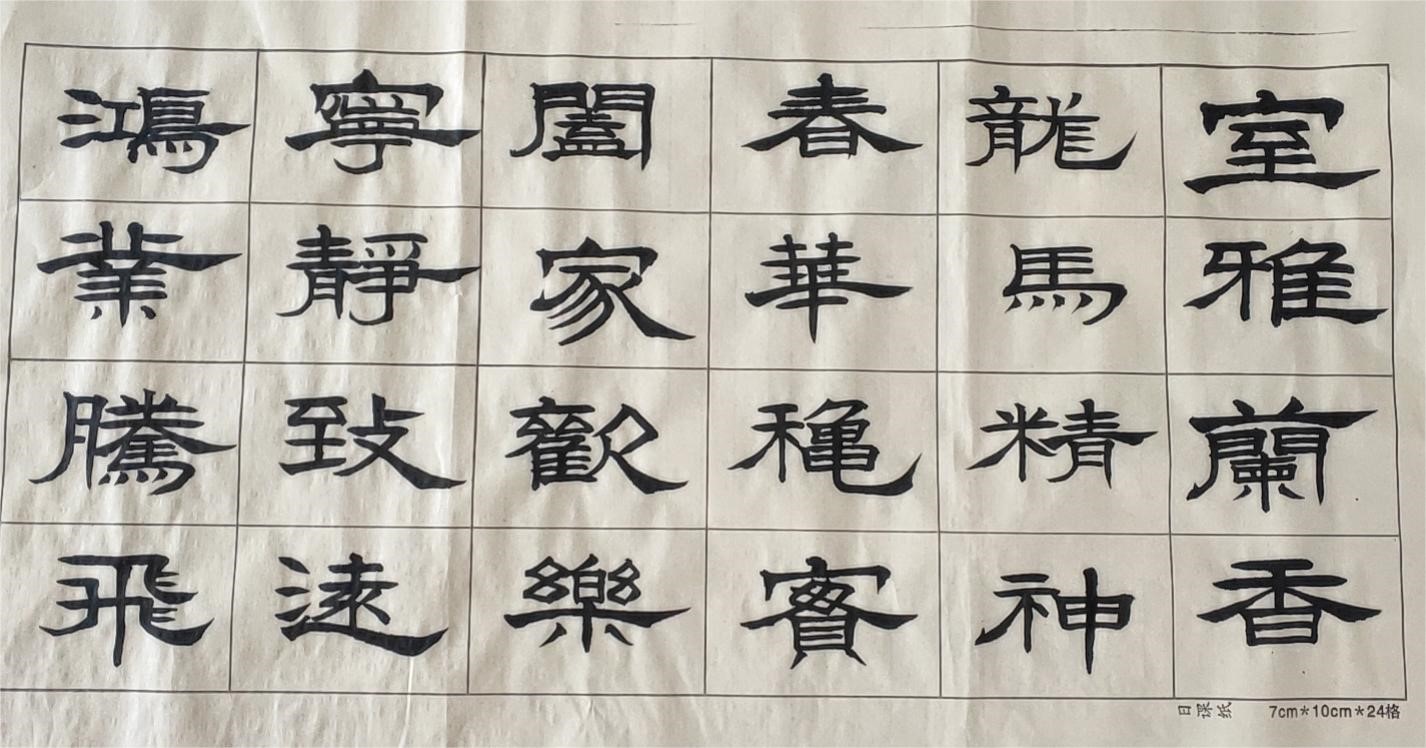 室雅蘭香
龍馬精神
春華穐實
闔家歡樂
寧靜致遠
鴻業騰飛
日课纸 7cm*10cm*24格